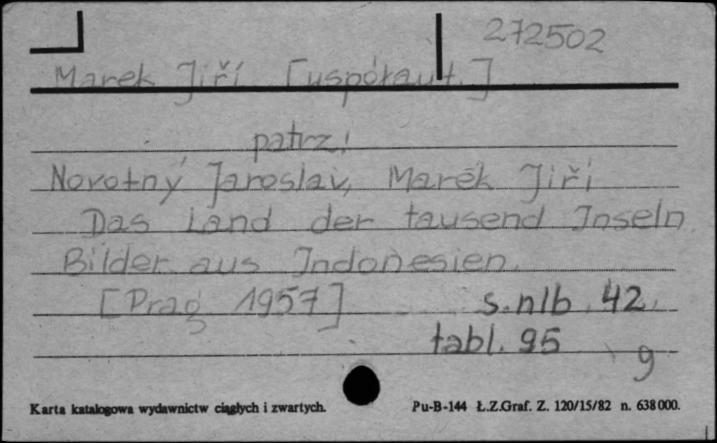 272502
Marek Jiří [współaut.]
patrz:
Novotný Jaroslav, Marek Jiří
Das Land der tausend Inseln
Bilder aus Indonesien.
[Prag 1957] s.nlb. 42,
tabl. 95
g
Karta katalogowa wydawnictw ciągłych i zwartych. Pu-B-144 Ł.Z.Graf. Z. 120/15/82 n. 638 000.